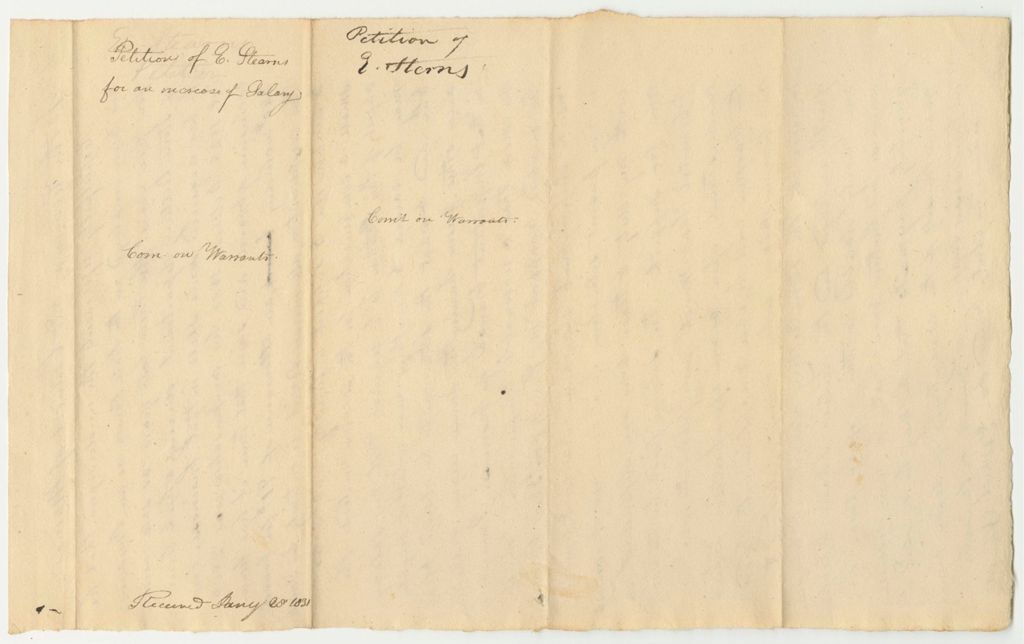 Petition of E. Stearns
for an increase of Salary
Com. on Warrants.
Received Jany 28 1831
Petition of
E. Sterns
Comt on Warrants.